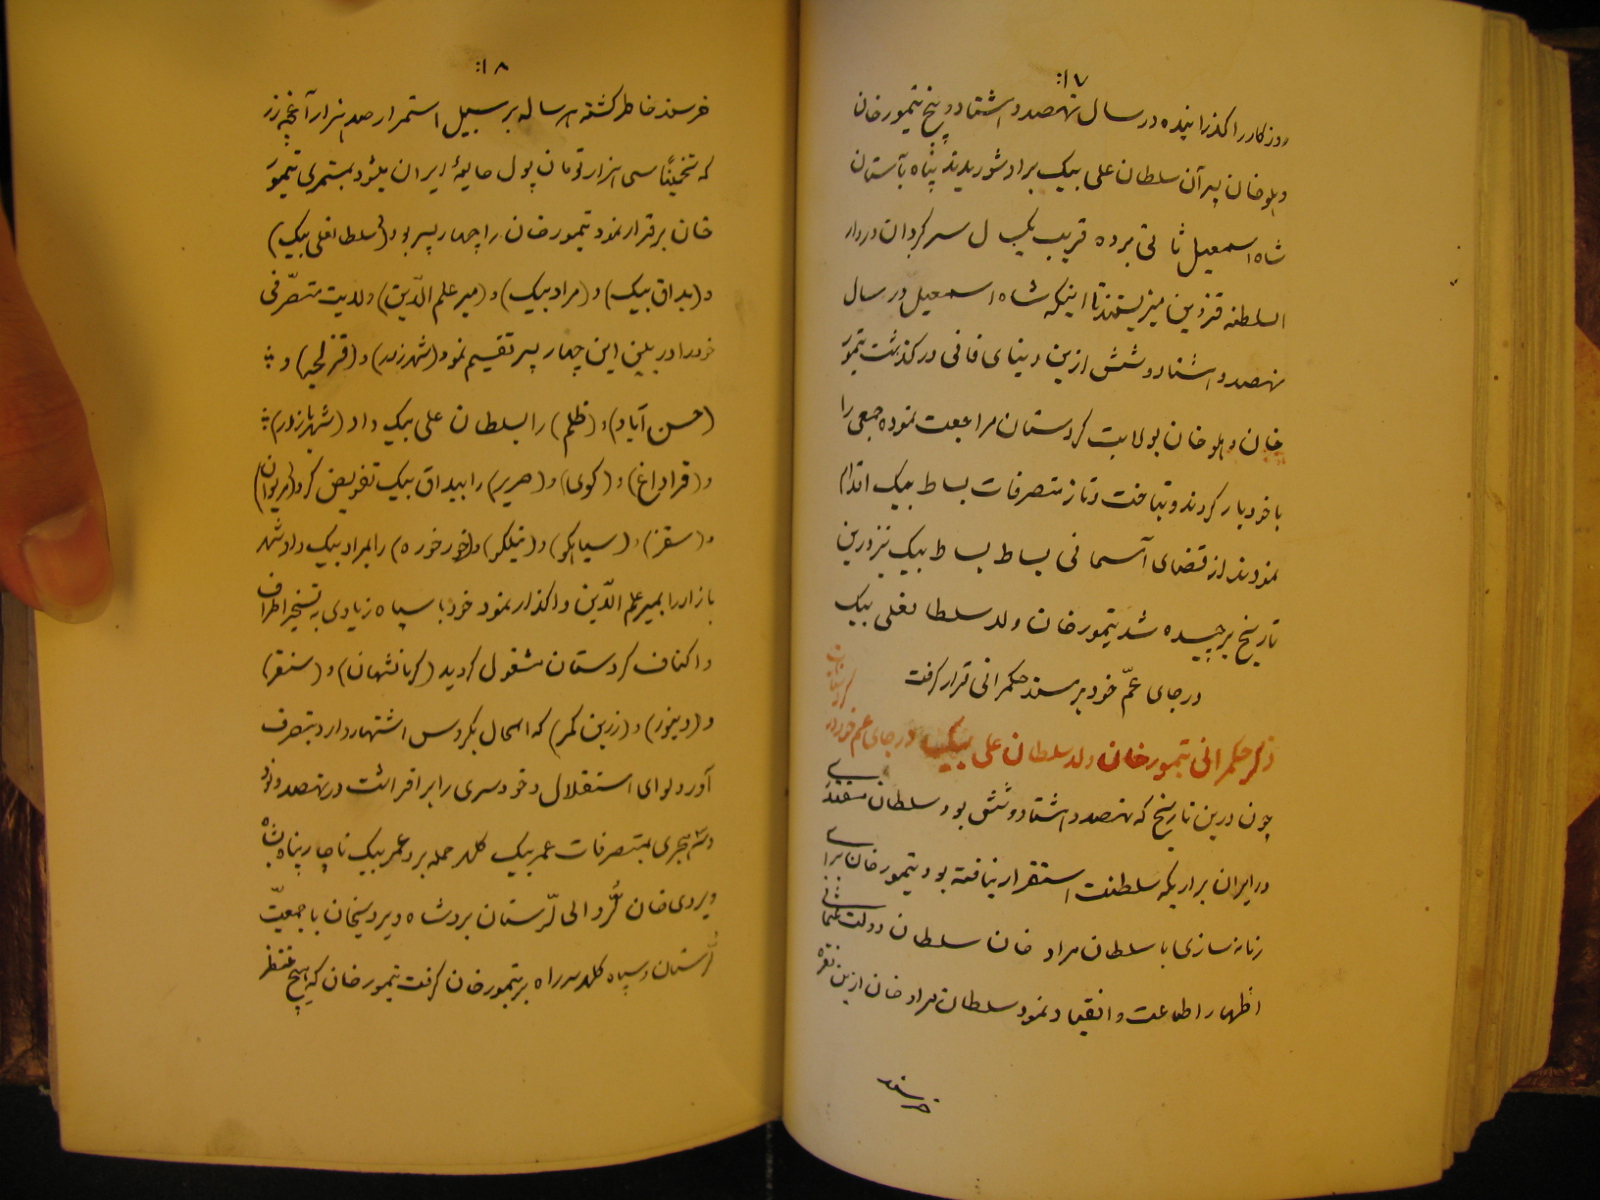 :۱۷
روزکار را کذرانیده در سال نهصد و هشتاد و پنج تیمور خان
و هلو خان پسران سلطان علی بیک برادر شوریدند پناه بآستان
شاه اسمعیل ثانی برده قریب یکسال سرکردان در دار
السلطنه قزوین میزیستند تا اینکه شاه اسمعیل در سال
نهصد و هشتاد و شش ازین دینای فانی درکذشت تیمور
خان و هلو خان بولایت کردستان مراجعت نموده جمعی را
با خود یار کردند و بتاخت و تاز متصرفات بساط بیک اقدام
نمودند از قضای آسمانی بساط بساط بیک نیز درین
تاریخ برچیده شد تیمور خان ولد سلطانعلی بیک
در جای عمّ خود بر مسند حکمرانی قرار کرفت
ذکر حکمرانی تیمور خان ولد سلطان علی بیک در جای عم خود در
کردستان
چون درین تاریخ که نهصد و هشتاد و شش بود سلطان مقتدری
در ایران بر اریکه سلطنت استقرار نیافته بود تیمور خان برای
زمانه سازی با سلطان مراد خان سلطان دولت عثمانی
اظهار اطاعت و انقیاد نمود سلطان مراد خان ازین نقره
خرسند
:۱۸
خرسند خاطر کشته هر ساله بر سبیل استمرار صد هزار آغچه زر
که تخمیناً سی هزار تومان پول حالیهٔ ایران میشود بمستمری تیمور
خان برقرار نمود تیمور خان را چهار پسر بود (سلطانعلی بیک)
و (بداق بیک) و (مراد بیک) و (میر علم الدّین) ولایت متصرّفی
خود را در بین این چهار پسر تقسیم نمود (شهرزور) و (قزلجه) و
(حسن آباد) و (ظلم) را بسلطان علی بیک داد (شهربازور)
و (قراداغ) و (کوی) و (حریر) را ببداق بیک تفویض کرد (مریوان)
و (سقز) و (سیاهکو) و (تیلکو) و (خورخوره) را بمراد بیک داد شهر
بازار را بمیر علم الدّین واکذار نمود خود با سپاه زیادی به تسخیر اطراف
و اکناف کردستان مشغول کردید (کرمانشهان) و (سنقر)
و (دینور) و (زرین کمر) که الحال بکروس اشتهار دارد بتصرف
آورد لوای استقلال و خودسری را برافراشت در نهصد و نود
و شش هجری بمتصرفات عمر بیک کلهر حمله برد عمر بیک ناچار پناه بشاه
ویردی خان لُر والی لرستان برد شاه ویردیخان با جمعیّت
لرستان و سپاه کلهر سر راه بر تیمور خان کرفت تیمور خان که هیچ منتظر